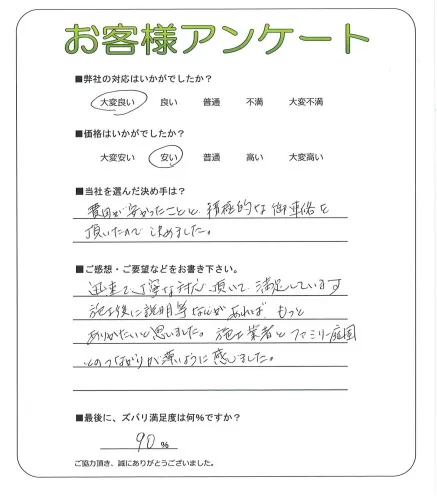 お客様アンケート
■弊社の対応はいかがでしたか？
大変良い 良い 普通 不満 大変不満
■価格はいかがでしたか？
大変安い 安い 普通 高い 大変高い
■当社を選んだ決め手は？
費用が安かったことと、積極的な御連絡を
頂いたので決めました。
■ご感想・ご要望などをお書き下さい。
迅速で丁寧な対応頂いて、満足しています
施工後に説明等なんかあれば もっと
ありがたいと思いました。施工業者とファミリー庭園
のつながりが薄いように感じました。
■最後に、ズバリ満足度は何%ですか？
90 %
ご協力頂き、誠にありがとうございました。